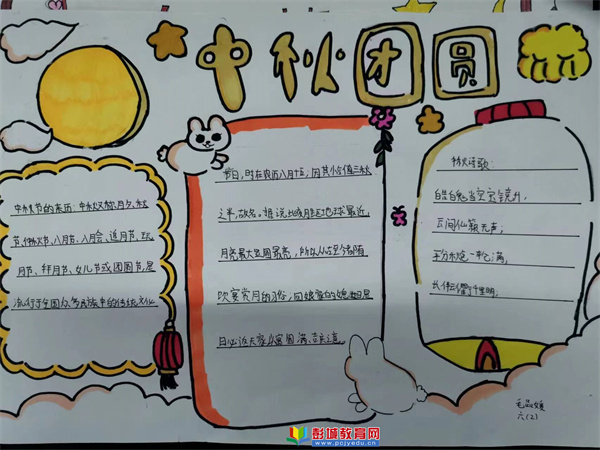 中秋团圆
中秋节的来历：中秋又称月夕、秋
节、仲秋节、八月节、八月会、追月节、玩
月节、拜月节、女儿节或团圆节，是
流行于全国众多民族中的传统文化
节日，时在农历八月十五；因其恰值三秋
之半，故名。据说此夜月球距地球最近，
月亮最大最圆最亮，所以从古至今都有
饮宴赏月的习俗；回娘家的媳妇是
日必返夫家，以寓圆满、吉庆之意。
中秋诗歌：
皓魄当空宝镜升，
云间仙籁无声；
平分秋色一轮满，
长伴云衢千里明；
六(2)
彭城教育网
www.pcjyedu.cn